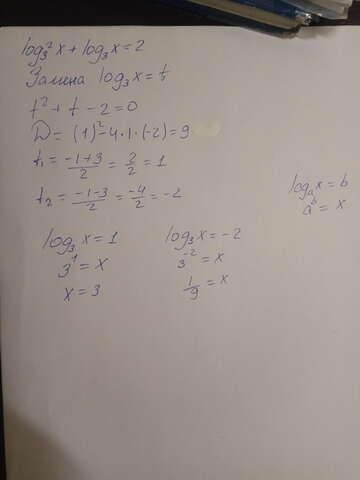 log₃²x + log₃x = 2
Замена log₃x = t
t² + t - 2 = 0
D = (1)² - 4·1·(-2) = 9
t₁ = (-1+3)/2 = 2/2 = 1
t₂ = (-1-3)/2 = -4/2 = -2
logₐx = b
aᵇ = x
log₃x = 1 log₃x = -2
3¹ = x 3⁻² = x
x = 3 1/9 = x